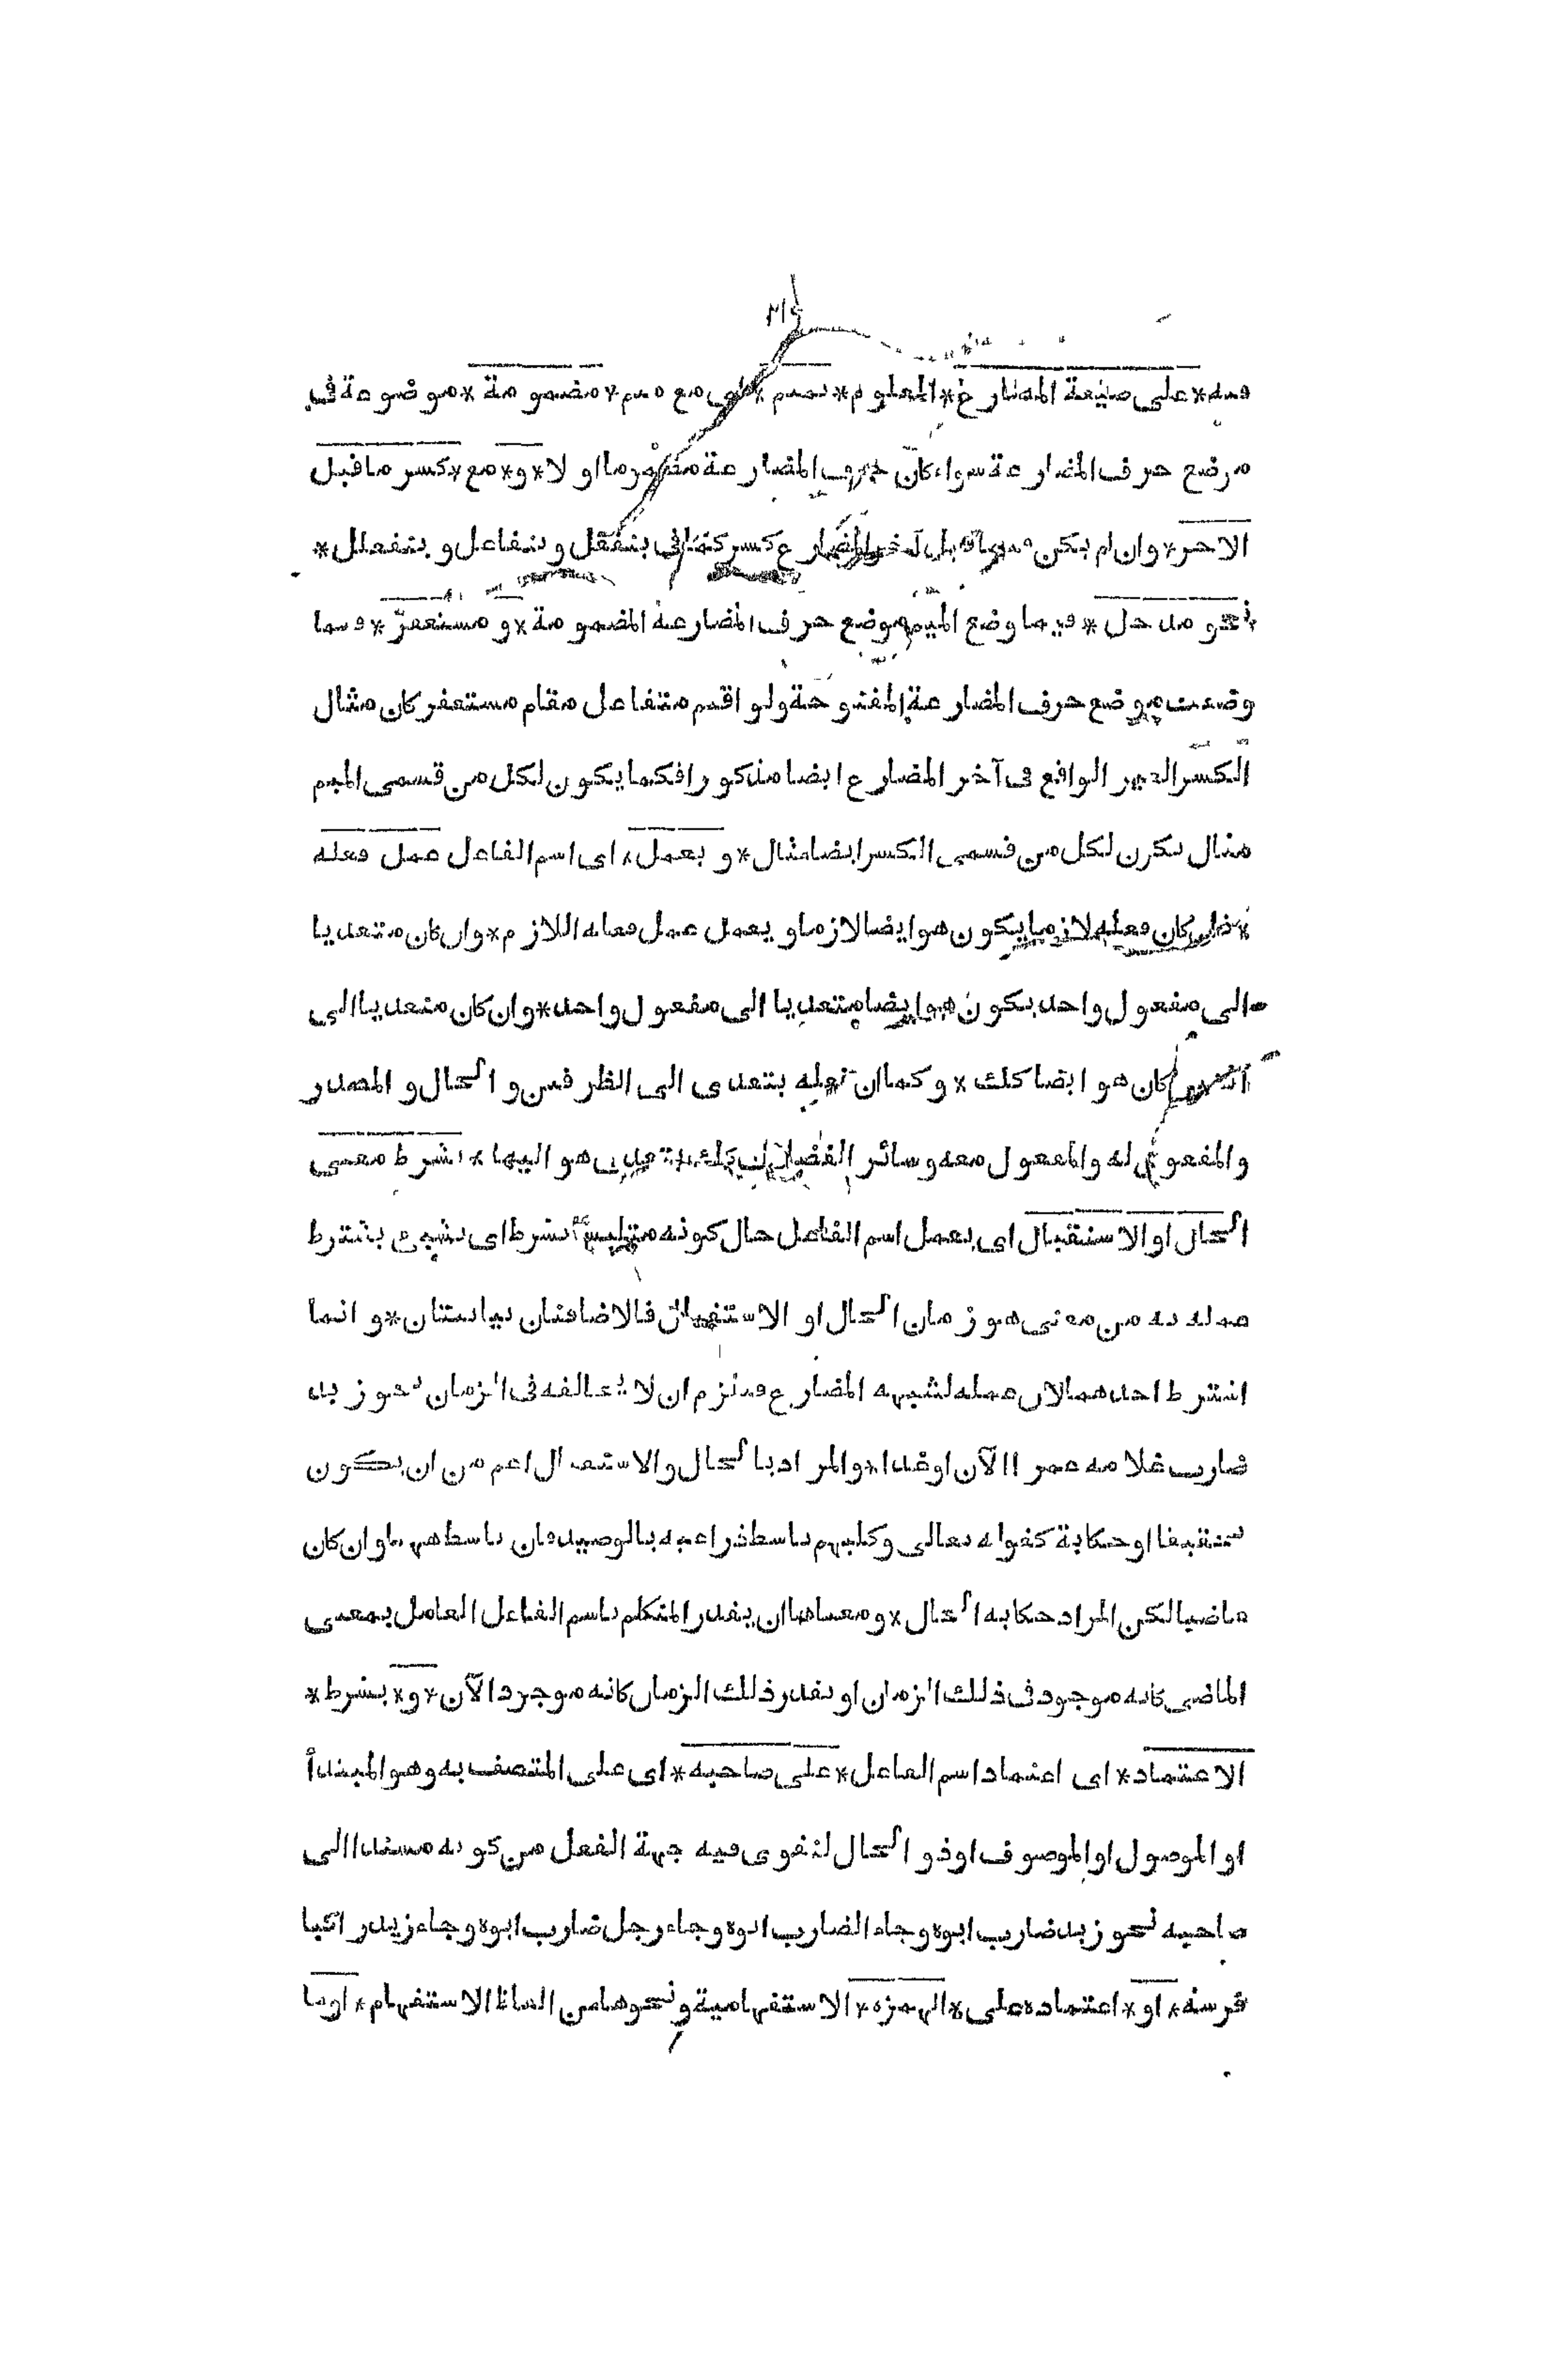 ٣١٤
فيه * على صيغة المضارع * المعلوم * بميم * اى مع ميم * مضمومة * موضوعة فى
موضع حرف المضارعة سواء كان حرف المضارعة مضموما او لا * و * مع * كسر ما قبل
الاخر * وان لم يكن فيما قبل آخر المضارع كسر كما فى يتفعل ويتفاعل ويتفعلل *
نحو مدخل * فيما وضع الميم موضع حرف المضارعة المضمومة * و مستغفر * فيما
وضعت موضع حرف المضارعة المفتوحة ولو اقيم متفاعل مقام مستغفر كان مثال
الكسر الغير الواقع فى آخر المضارع ايضا مذكورا فكما يكون لكل من قسمى الميم
مثال يكون لكل من قسمى الكسر ايضا مثال * و يعمل * اى اسم الفاعل عمل فعله
* فان كان فعله لازما يكون هو ايضا لازما ويعمل عمل فعله اللازم * وان كان متعديا
الى مفعول واحد يكون هو ايضا متعديا الى مفعول واحد * وان كان متعديا الى
اثنين كان هو ايضا كذلك * وكما ان فعله يتعدى الى الظرفين والحال والمصدر
والمفعول له والمفعول معه وسائر الفضلات كذلك يتعدى هو اليها * بشرط معنى
الحال او الاستقبال اى يعمل اسم الفاعل حال كونه متلبسا بشرط اى بشىء يشترط
عمله به من معنى هو زمان الحال او الاستقبال فالاضافتان بيانيتان * وانما
اشترط احدهما لان عمله لشبهه المضارع فيلزم ان لا يخالفه فى الزمان نحو زيد
ضارب غلامه عمرا الآن او غدا * والمراد بالحال والاستقبال اعم من ان يكون
تحقيقا او حكاية كقوله تعالى وكلبهم باسط ذراعيه بالوصيد فان باسط ههنا وان كان
ماضيا لكن المراد حكاية الحال * ومعناها ان يقدر المتكلم باسم الفاعل العامل بمعنى
الماضى كانه موجود فى ذلك الزمان او يقدر ذلك الزمان كانه موجود الآن * و * بشرط *
الاعتماد * اى اعتماد اسم الفاعل * على صاحبه * اى على المتصف به وهو المبتدأ
او الموصول او الموصوف او ذو الحال لتقوى فيه جهة الفعل من كونه مسندا الى
صاحبه نحو زيد ضارب ابوه وجاء الضارب ابوه وجاء رجل ضارب ابوه وجاء زيد راكبا
فرسه * او * اعتماده على * الهمزة * الاستفهامية ونحوها من الفاظ الاستفهام * او ما